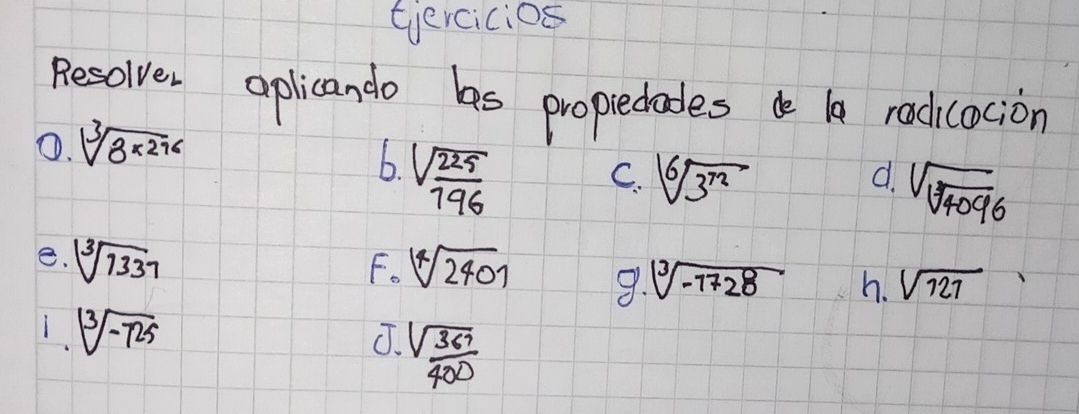 Ejercicios
Resolver aplicando las propiedades de la radicación
a. ∛8×216 b. √225/196 c. ⁶√3¹² d. √∛4096
e. ∛1331 F. ⁴√2401 g. ∛-1728 h. √121
i. ∛-125 J. √361/400